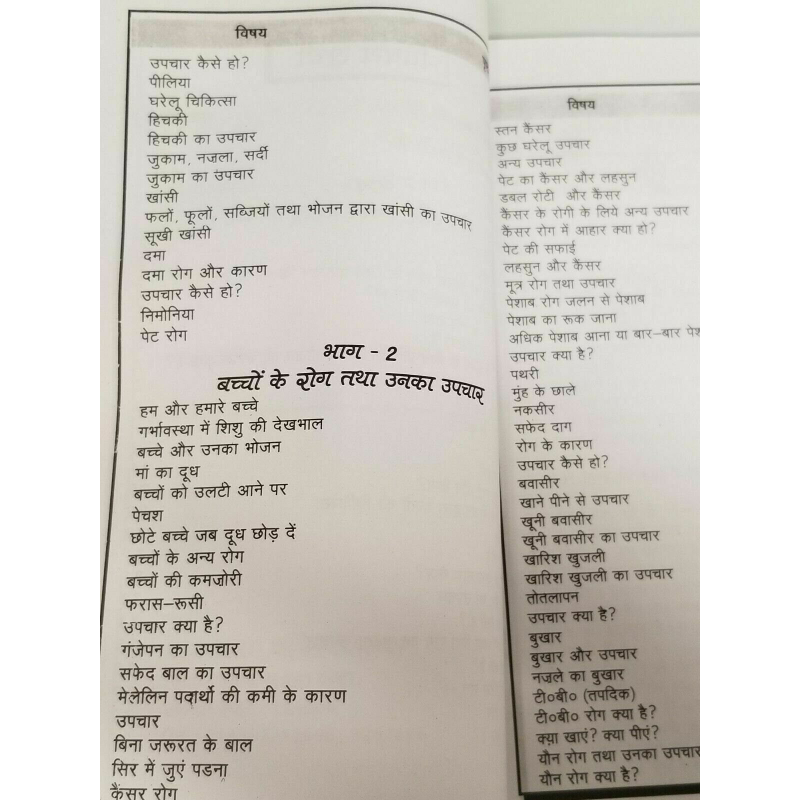 विषय
उपचार कैसे हो?
पीलिया
घरेलू चिकित्सा
हिचकी
हिचकी का उपचार
जुकाम, नजला, सर्दी
जुकाम का उपचार
खांसी
फलों, फूलों, सब्जियों तथा भोजन द्वारा खांसी का उपचार
सूखी खांसी
दमा
दमा रोग और कारण
उपचार कैसे हो?
निमोनिया
पेट रोग
भाग - 2
बच्चों के रोग तथा उनका उपचार
हम और हमारे बच्चे
गर्भावस्था में शिशु की देखभाल
बच्चे और उनका भोजन
मां का दूध
बच्चों को उलटी आने पर
पेचश
छोटे बच्चे जब दूध छोड़ दें
बच्चों के अन्य रोग
बच्चों की कमजोरी
फरास–रूसी
उपचार क्या है?
गंजेपन का उपचार
सफेद बाल का उपचार
मेलेलिन पदार्थो की कमी के कारण
उपचार
बिना जरूरत के बाल
सिर में जुएं पडना
कैंसर रोग
विषय
स्तन कैंसर
कुछ घरेलू उपचार
अन्य उपचार
पेट का कैंसर और लहसुन
डबल रोटी और कैंसर
कैंसर के रोगी के लिये अन्य उपचार
कैंसर रोग में आहार क्या हो?
पेट की सफाई
लहसुन और कैंसर
मूत्र रोग तथा उपचार
पेशाब रोग जलन से पेशाब
पेशाब का रूक जाना
अधिक पेशाब आना या बार–बार पेश
उपचार क्या है?
पथरी
मुंह के छाले
नकसीर
सफेद दाग
रोग के कारण
उपचार कैसे हो?
बवासीर
खाने पीने से उपचार
खूनी बवासीर
खूनी बवासीर का उपचार
खारिश खुजली
खारिश खुजली का उपचार
तोतलापन
उपचार क्या है?
बुखार
बुखार और उपचार
नजले का बुखार
टी०बी० (तपदिक)
टी०बी० रोग क्या है?
क्या खाएं? क्या पीएं?
यौन रोग तथा उनका उपचार
यौन रोग क्या है?